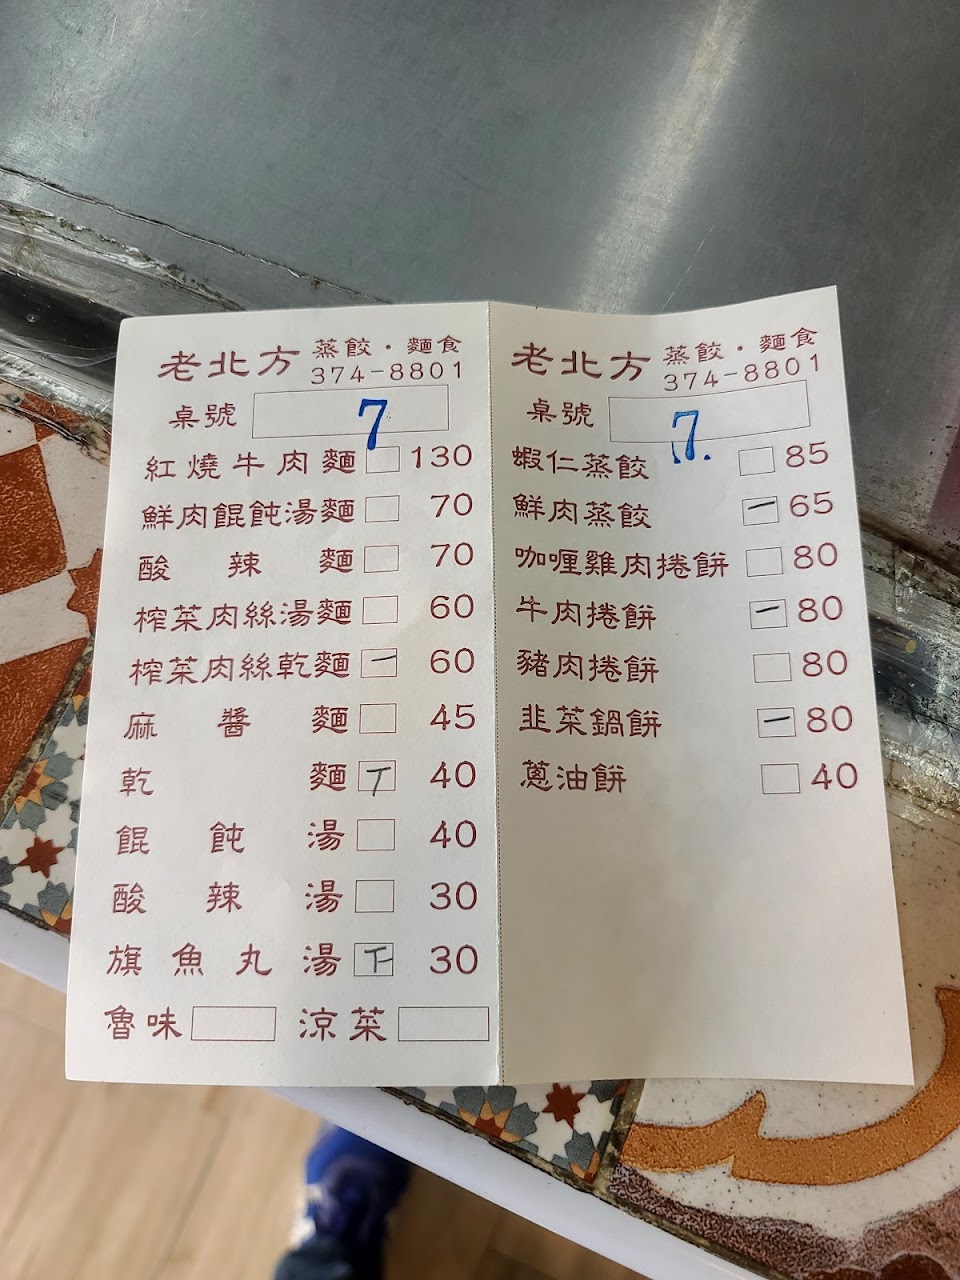 老北方 蒸餃・麵食
374-8801
桌號 7
紅燒牛肉麵 130
鮮肉餛飩湯麵 70
酸辣麵 70
榨菜肉絲湯麵 60
榨菜肉絲乾麵 一 60
麻醬麵 45
乾麵 丅 40
餛飩湯 40
酸辣湯 30
旗魚丸湯 下 30
魯味 涼菜
老北方 蒸餃・麵食
374-8801
桌號 7
蝦仁蒸餃 85
鮮肉蒸餃 一 65
咖喱雞肉捲餅 80
牛肉捲餅 一 80
豬肉捲餅 80
韭菜鍋餅 一 80
蔥油餅 40